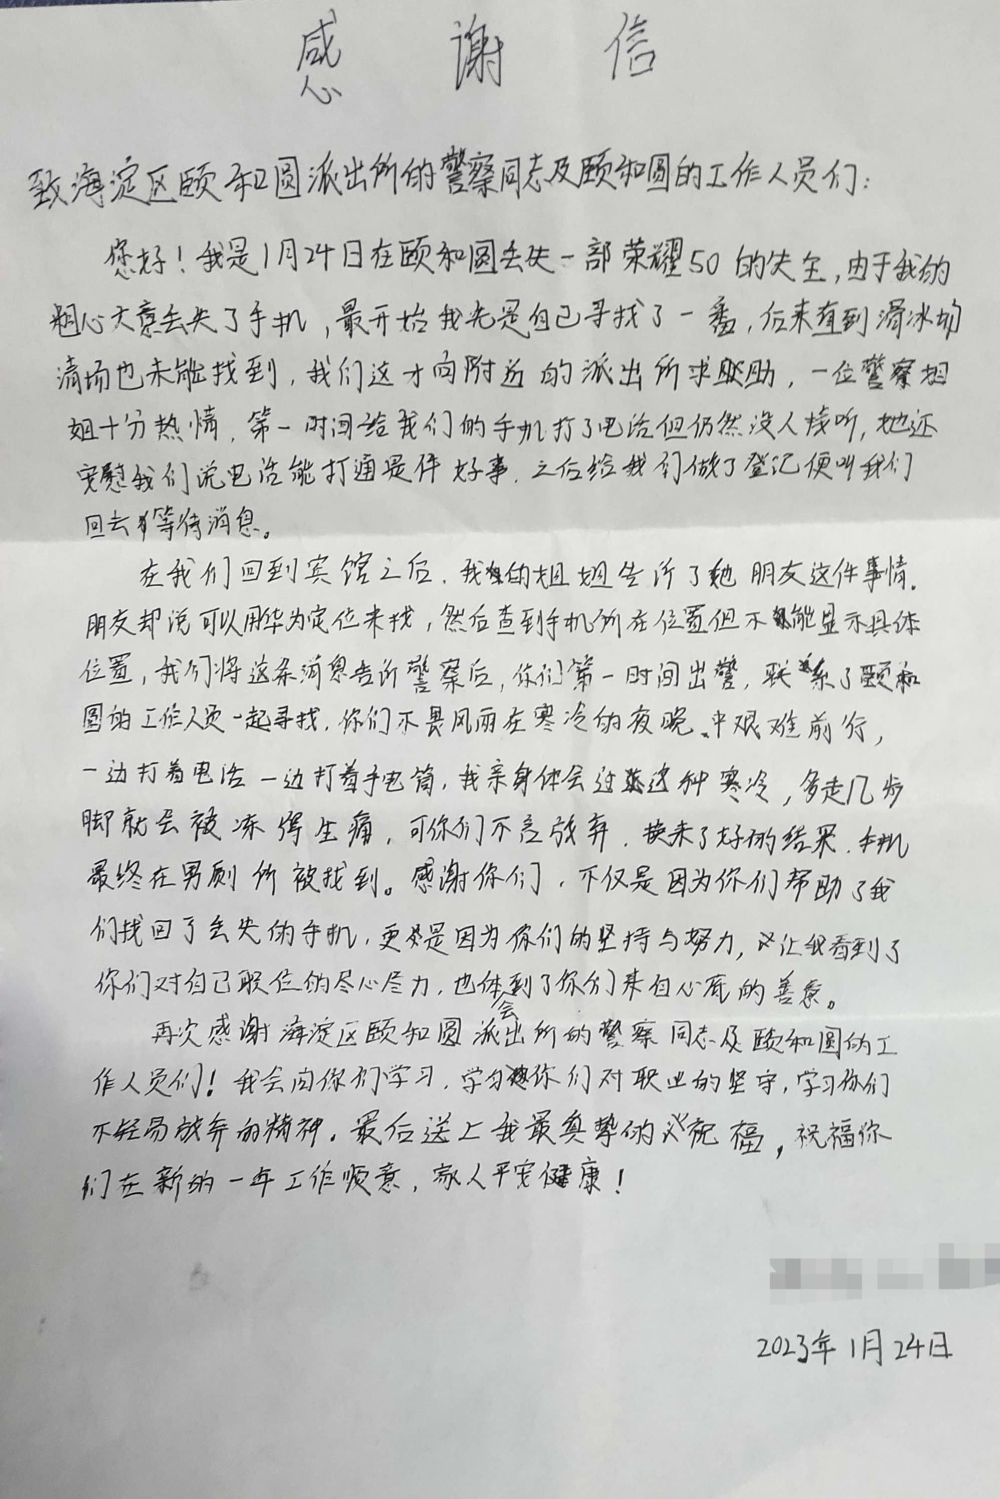 感谢信
致海淀区颐和圆派出所的警察同志及颐和圆的工作人员们：
您好！我是1月24日在颐和圆丢失一部荣耀50的失主，由于我的
粗心大意丢失了手机，最开始我先是自己寻找了一番，后来直到滑冰场
清场也未能找到，我们这才向附近的派出所求助，一位警察姐
姐十分热情，第一时间给我们的手机打了电话但仍然没人接听，她还
安慰我们说电话能打通是件好事，之后给我们做了登记便叫我们
回去等待消息。
在我们回到宾馆之后，我的姐姐告诉了她朋友这件事情，
朋友却说可以用华为定位来找，然后查到手机所在位置但不能显示具体
位置，我们将这条消息告诉警察后，你们第一时间出警，联系了颐和
圆的工作人员一起寻找，你们不畏风雨在寒冷的夜晚中艰难前行，
一边打着电话一边打着手电筒，我亲身体会过这种寒冷，多走几步
脚就会被冻得生痛，可你们不言放弃，换来了好的结果，手机
最终在男厕所被找到。感谢你们，不仅是因为你们帮助了我
们找回了丢失的手机，更是因为你们的坚持与努力，让我看到了
你们对自己职位的尽心尽力，也体会到了你们来自心底的善意。
再次感谢海淀区颐和圆派出所的警察同志及颐和圆的工
作人员们！我会向你们学习，学习你们对职业的坚守，学习你们
不轻易放弃的精神。最后送上我最真挚的祝福，祝福你
们在新的一年工作顺意，家人平安健康！
2023年1月24日